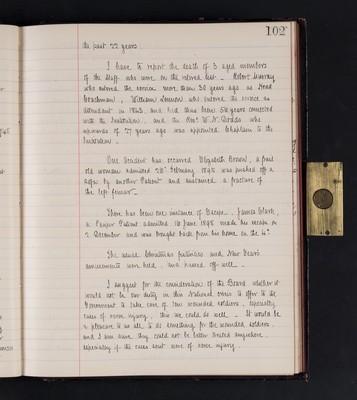 102
the past 22 years.
I have to report the death of 3 aged members
of the Staff who were on the retired list — Robert Murray
who entered the service more than 30 years ago as Head
Coachman, William Lennon who entered the service as
Attendant in 1863 and had thus been 52 years connected
with the Institution, and the Revd. W. N. Dodds who
upwards of 27 years ago was appointed Chaplain to the
Institution.
One Accident has occurred Elizabeth Brown, a frail
old woman admitted February 1895 was pushed off a
by another Patient and sustained a fracture of
the left femur —
There has been one instance of Escape — James Clark,
a Pauper Patient admitted 16 June 1898 made his escape on
2 December and was brought back from his home on the 4th.
The usual Christmas festivities and New Year's
amusements were held, and passed off well —
I suggest for the consideration of the Board whether it
would not be our duty in this National crisis to offer to the
Government to take care of some wounded soldiers, especially
cases of nerve injury, this we could do well — It would be
a pleasure to us all, to do something for the wounded soldiers
and I am sure they could not be better treated anywhere
especially if the cases sent were of nerve injury.